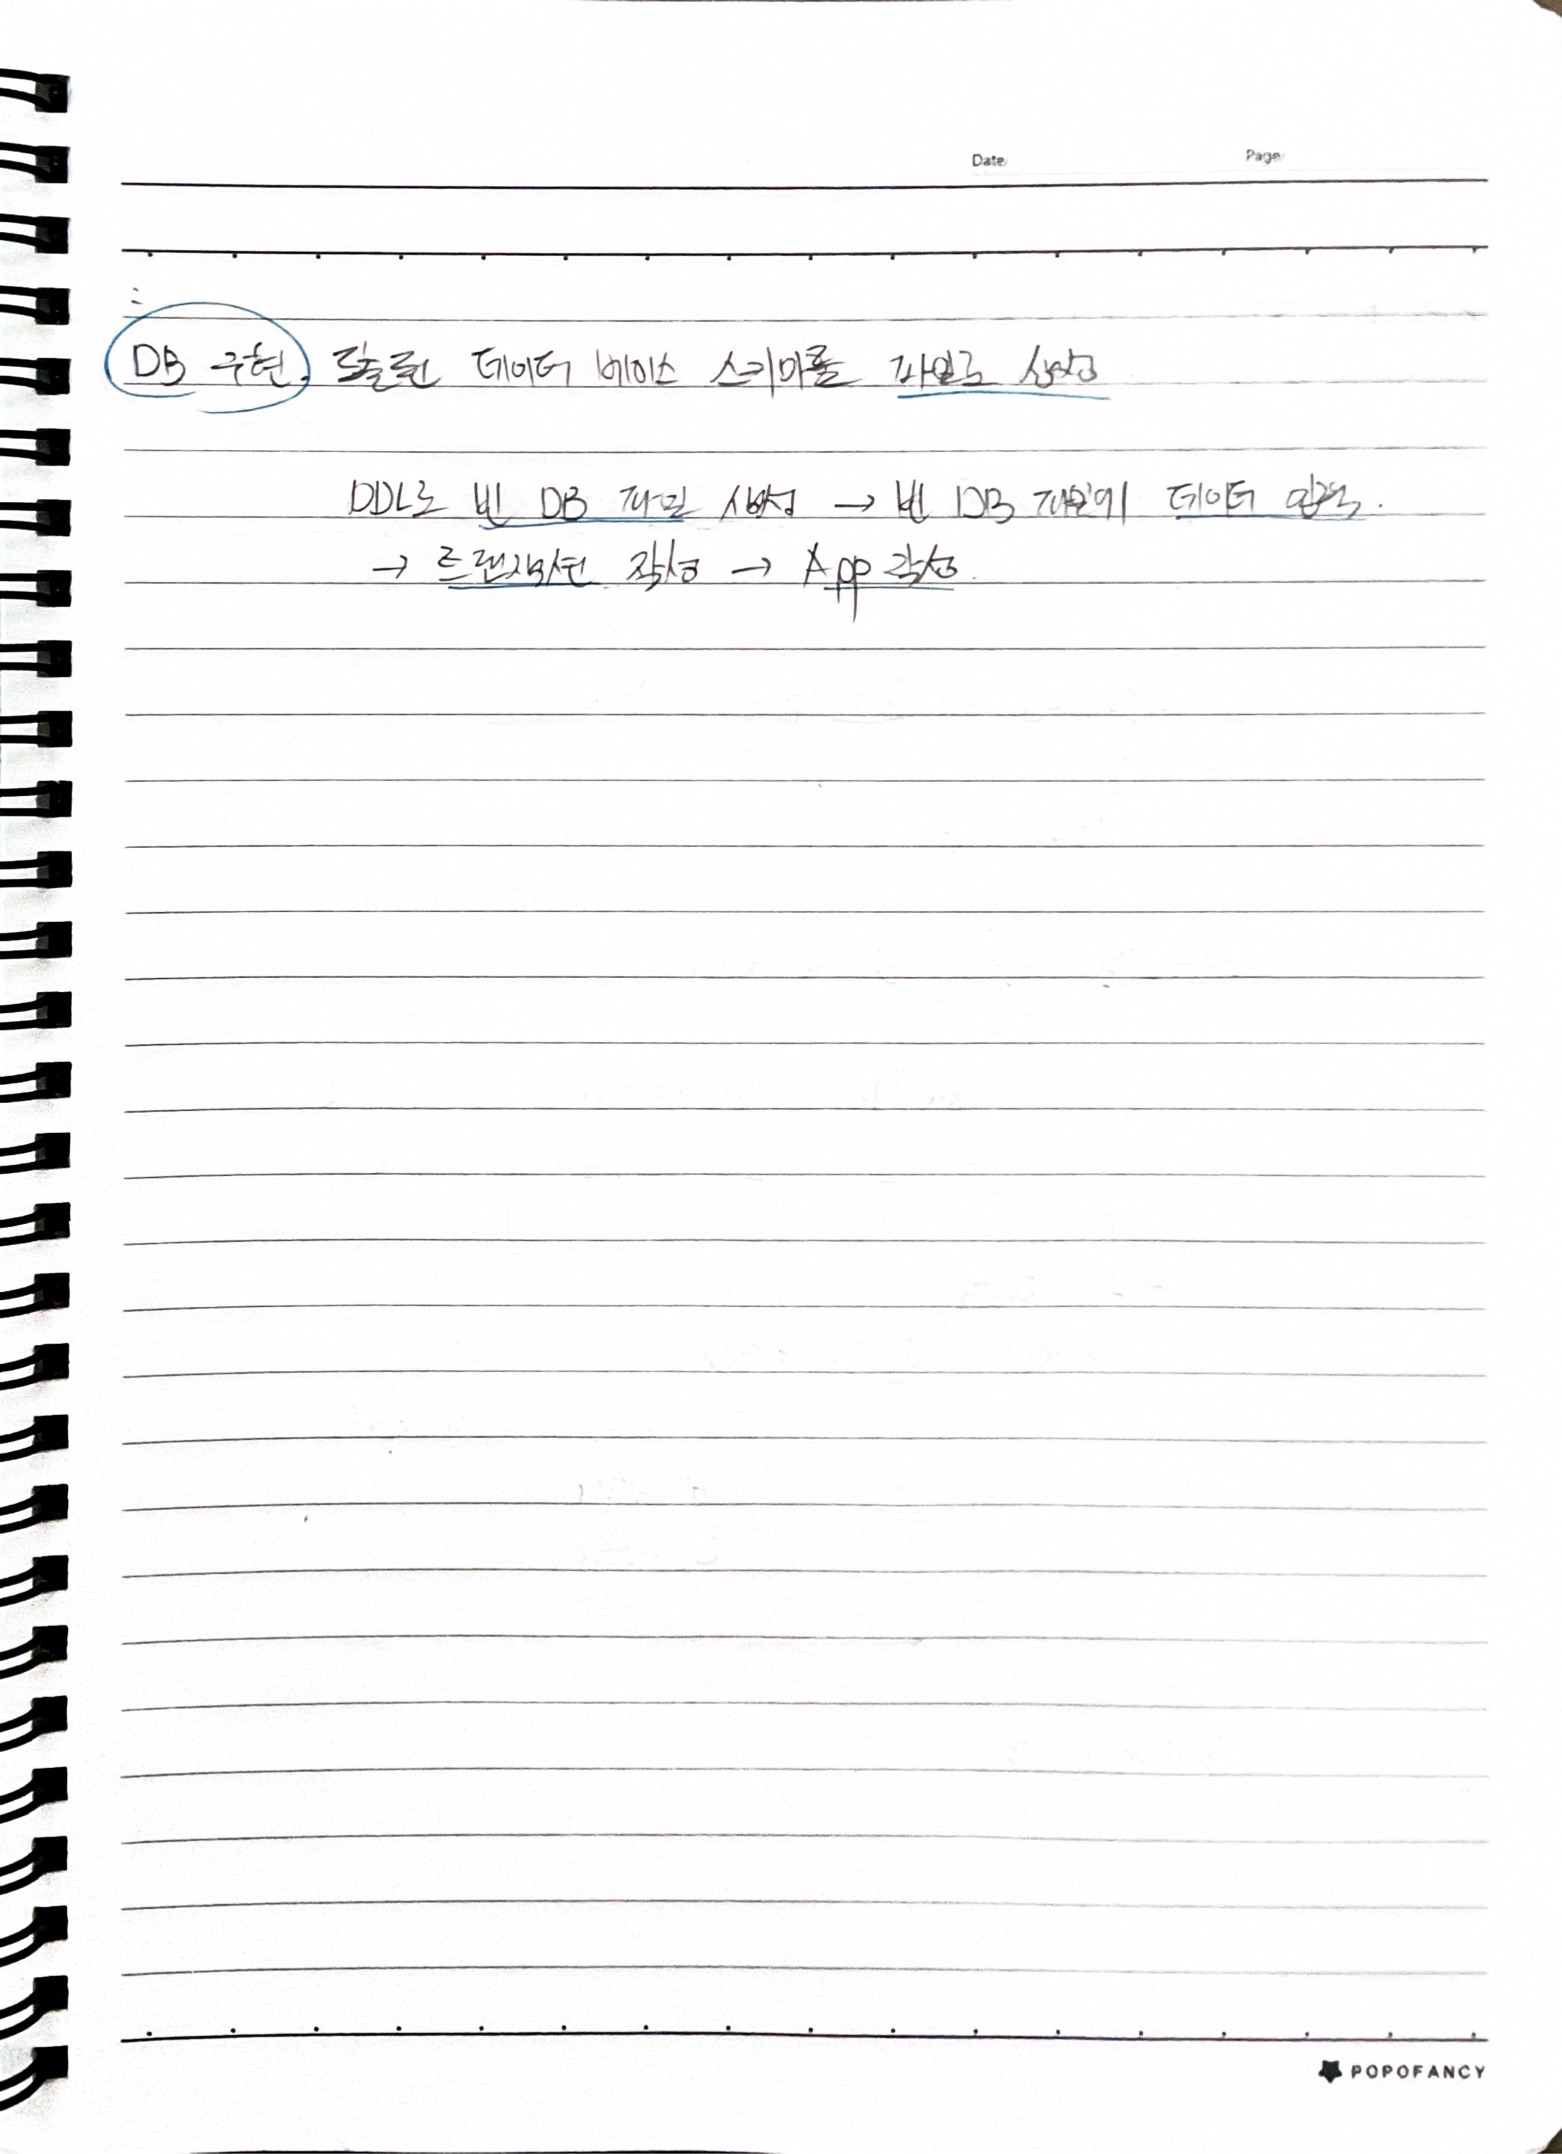 Date Page
DB 구현. 도출된 데이터 베이스 스키마를 파일로 생성
DDL로 빈 DB 파일 생성 → 빈 DB 파일에 데이터 입력.
→ 트랜잭션 작성 → App 작성.
POPOFANCY